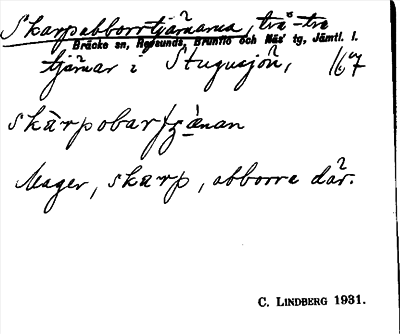 Skarpabborrtjärnarna, två-tre
Bräcke sn, Refsunds, Brunflo och Näs' tg, Jämtl. l.
tjärnar i Stugusjön, 1/67
skärpobartjænan
Mager, skarp, abborre där.
C. LINDBERG 1931.